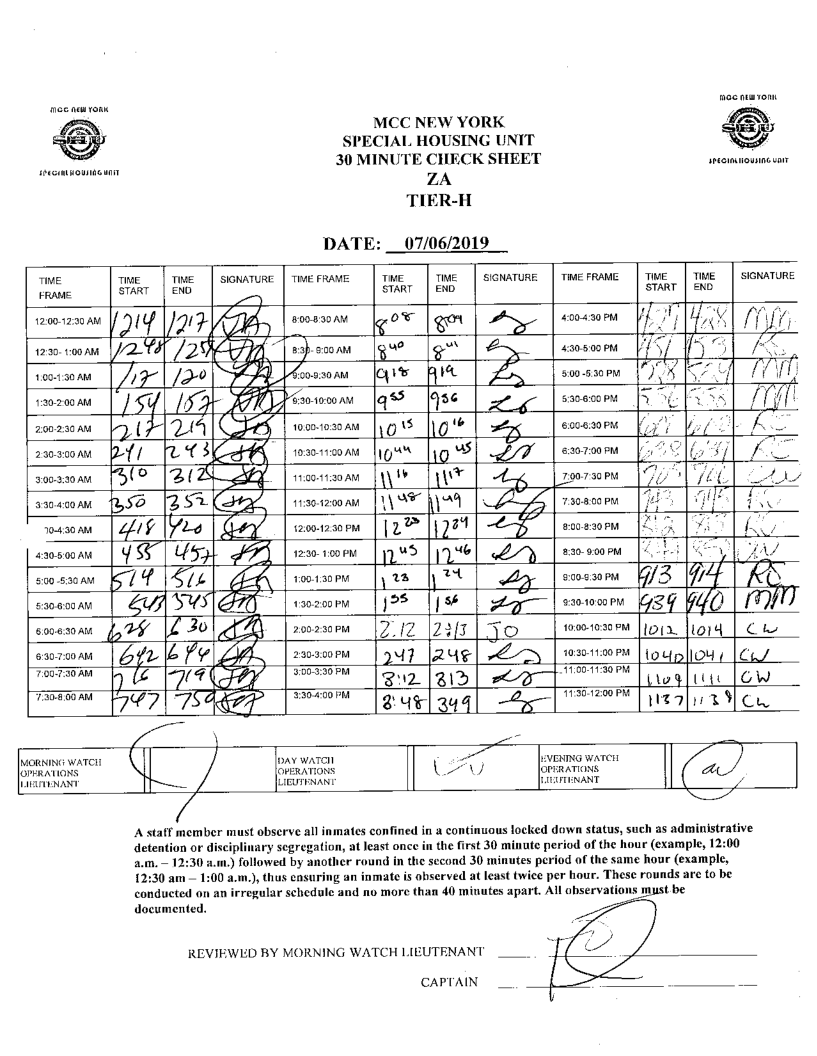 MCC NEW YORK
SPECIAL HOUSING UNIT
MCC NEW YORK
SHU
SPECIAL HOUSING UNIT
MCC NEW YORK
SPECIAL HOUSING UNIT
30 MINUTE CHECK SHEET
ZA
TIER-H
DATE: 07/06/2019
TIME FRAME TIME START TIME END SIGNATURE TIME FRAME TIME START TIME END SIGNATURE TIME FRAME TIME START TIME END SIGNATURE
12:00-12:30 AM 1214 1217 8:00-8:30 AM 808 809 4:00-4:30 PM 427 428 MM
12:30- 1:00 AM 1248 125 8:30- 9:00 AM 840 841 4:30-5:00 PM 451 453 RC
1:00-1:30 AM 117 120 9:00-9:30 AM 918 919 5:00 -5:30 PM MM
1:30-2:00 AM 154 157 9:30-10:00 AM 955 956 5:30-6:00 PM MM
2:00-2:30 AM 217 219 10:00-10:30 AM 1015 1016 6:00-6:30 PM RC
2:30-3:00 AM 241 243 10:30-11:00 AM 1044 1045 6:30-7:00 PM 638 639 RC
3:00-3:30 AM 310 312 11:00-11:30 AM 1116 1117 7:00-7:30 PM CW
3:30-4:00 AM 350 352 11:30-12:00 AM 1148 1149 7:30-8:00 PM 743
10-4:30 AM 418 420 12:00-12:30 PM 1223 1224 8:00-8:30 PM
4:30-5:00 AM 455 457 12:30- 1:00 PM 1245 1246 8:30- 9:00 PM
5:00 -5:30 AM 514 516 1:00-1:30 PM 123 124 9:00-9:30 PM 913 914 RC
5:30-6:00 AM 543 545 1:30-2:00 PM 155 156 9:30-10:00 PM 939 940 MM
6:00-6:30 AM 628 630 2:00-2:30 PM 2:12 2:13 JO 10:00-10:30 PM 1012 1014 CW
6:30-7:00 AM 642 644 2:30-3:00 PM 247 248 10:30-11:00 PM 1040 1041 CW
7:00-7:30 AM 716 719 3:00-3:30 PM 8:12 813 11:00-11:30 PM 1109 1111 CW
7:30-8:00 AM 747 750 3:30-4:00 PM 8:48 349 11:30-12:00 PM 1137 1139 CW
MORNING WATCH OPERATIONS LIEUTENANT DAY WATCH OPERATIONS LIEUTENANT EVENING WATCH OPERATIONS LIEUTENANT
A staff member must observe all inmates confined in a continuous locked down status, such as administrative
detention or disciplinary segregation, at least once in the first 30 minute period of the hour (example, 12:00
a.m. – 12:30 a.m.) followed by another round in the second 30 minutes period of the same hour (example,
12:30 am – 1:00 a.m.), thus ensuring an inmate is observed at least twice per hour. These rounds are to be
conducted on an irregular schedule and no more than 40 minutes apart. All observations must be
documented.
REVIEWED BY MORNING WATCH LIEUTENANT
CAPTAIN